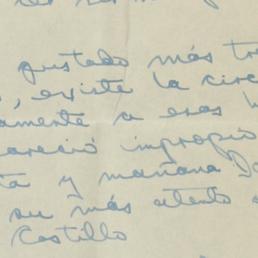 gustado más tr
, existe la circ
amente a esas h
areció impropio
ta y mañana D
su más atento
Castillo